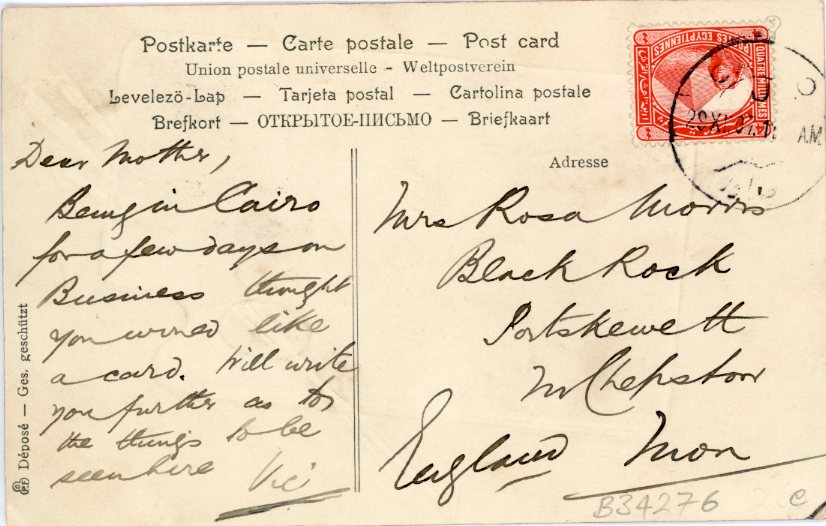 Postkarte — Carte postale — Post card
Union postale universelle - Weltpostverein
Levelezö-Lap — Tarjeta postal — Cartolina postale
Brefkort — ОТКРЫТОЕ-ПИСЬМО — Briefkaart
POSTES EGYPTIENNES
QUATRE MILLIEMES
CAIRO
AM
Adresse
Dear Mother,
Being in Cairo
for a few days on
Business thought
you would like
a card. Will write
you further as to
the things to be
seen here Vic
Mrs Rosa Morris
Black Rock
Portskewett
Nr Chepstow
England Mon
Déposé — Ges. geschützt
B34276